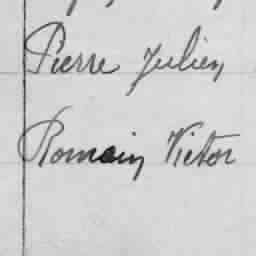 Pierre Julien
Romain Victor